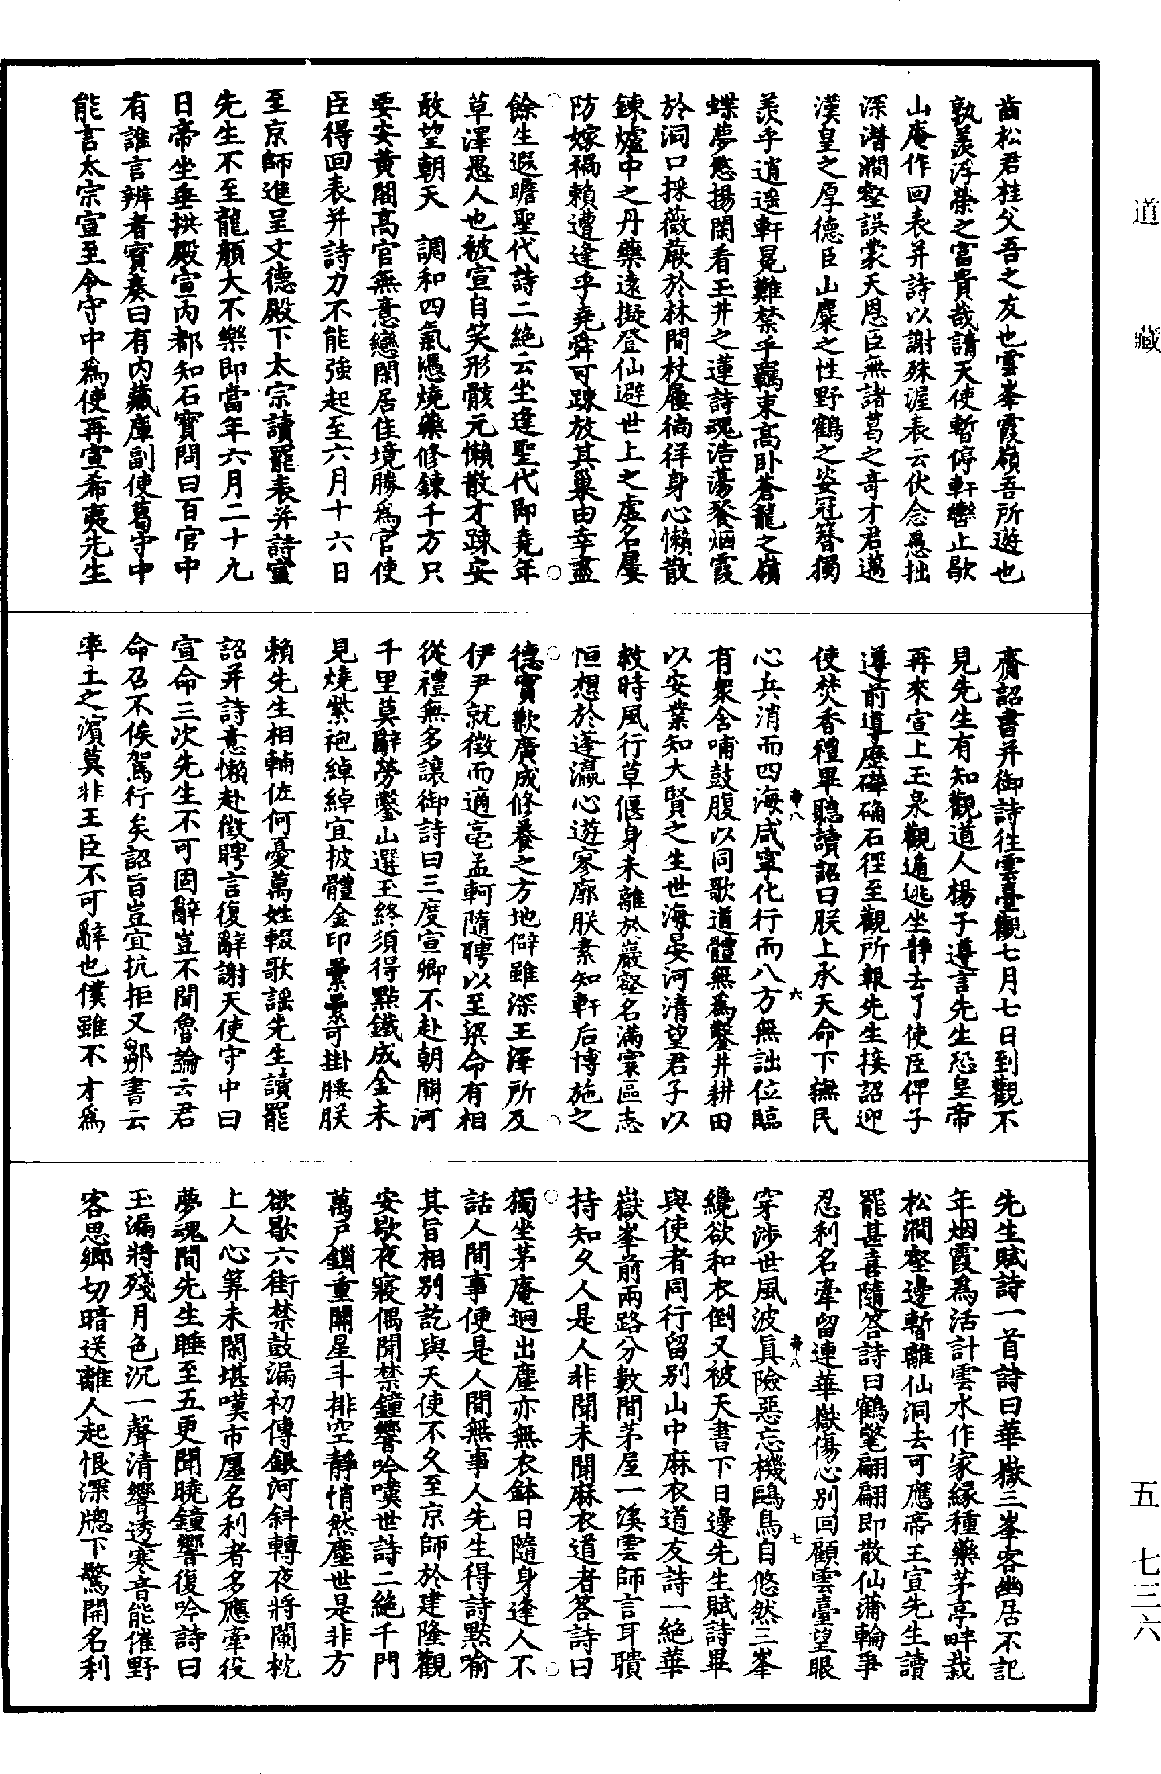 道藏
五 七三六
齒松君桂父吾之友也雲峯霞嶺吾所遊也
孰羨浮榮之富貴哉請天使暫停軒轡止歇
山庵作回表并詩以謝殊渥表云伏念愚拙
深潛澗壑誤蒙天恩臣無諸葛之奇才君邁
漢皇之厚德臣山麋之性野鶴之姿冠簪獨
羨乎逍遙軒冕難禁乎羈束高卧蒼龍之嶺
蝶夢悠揚閑看玉井之蓮詩魂浩蕩飱烟霞
於洞口採薇蕨於林間杖屨徜徉身心懶散
鍊爐中之丹藥遠擬登仙避世上之虛名屢
防嫁禍賴遭逢乎堯舜可踈放其巢由幸盡
餘生遐瞻聖代詩二絕云坐逢聖代即堯年
草澤愚人也被宣自笑形骸元懶散才踈安
敢望朝天　調和四氣憑燒藥修鍊千方只
要安黃閣高官無意戀閑居佳境勝爲官使
臣得回表并詩力不能強起至六月十六日
至京師進呈文德殿下太宗讀罷表并詩宣
先生不至龍顏大不樂即當年六月二十九
日帝坐垂拱殿宣內都知石寶問曰百官中
有誰言辨者寶奏曰有內藏庫副使葛守中
能言太宗宣至令守中爲使再宣希夷先生
齎詔書并御詩往雲臺觀七月七日到觀不
見先生有知觀道人楊子遵言先生恐皇帝
再來宣上玉泉觀遁逃坐靜去了使臣俾子
遵前導歷磽确石徑至觀所報先生接詔迎
使焚香禮畢聽讀詔曰朕上承天命下撫民
心兵消而四海咸寧化行而八方無詘位臨
有衆含哺鼓腹以同歌道體無爲鑿井耕田
以安業知大賢之生世海晏河清望君子以
救時風行草偃身未離於巖壑名滿寰區志
恒想於蓬瀛心遊寥廓朕素知軒后博施之
德實歉廣成修養之方地僻雖深王澤所及
伊尹就徵而適亳孟軻隨聘以至梁命有相
從禮無多讓御詩曰三度宣卿不赴朝關河
千里莫辭勞鑿山選玉終須得點鐵成金未
見燒紫袍綽綽宜披體金印纍纍可掛腰朕
賴先生相輔佐何憂萬姓輟歌謠先生讀罷
詔并詩意懶赴徵聘言復辭謝天使守中曰
宣命三次先生不可固辭豈不聞魯論云君
命召不俟駕行矣詔旨豈宜抗拒又鄒書云
率土之濱莫非王臣不可辭也僕雖不才爲
先生賦詩一首詩曰華嶽三峯客幽居不記
年烟霞爲活計雲水作家緣種藥茅亭畔栽
松澗壑邊暫離仙洞去可應帝王宣先生讀
罷甚喜隨答詩曰鶴氅翩翩即散仙蒲輪爭
忍利名牽留連華嶽傷心別回顧雲臺望眼
穿涉世風波真險惡忘機鷗鳥自悠然三峯
纔欲和衣倒又被天書下日邊先生賦詩畢
與使者同行留別山中麻衣道友詩一絕華
嶽峯前兩路分數間茅屋一溪雲師言耳聵
持知久人是人非聞未聞麻衣道者答詩曰
獨坐茅庵迥出塵亦無衣鉢日隨身逢人不
話人間事便是人間無事人先生得詩默喻
其旨相別訖與天使不久至京師於建隆觀
安歇夜寢偶聞禁鐘響吟嘆世詩二絕千門
萬戶鎖重關星斗排空靜悄然塵世是非方
欲歇六街禁鼓漏初傳銀河斜轉夜將闌枕
上人心算未閑堪嘆市廛名利者名應牽役
夢魂間先生睡至五更聞曉鐘響復吟詩曰
玉漏將殘月色沉一聲清響透寒音能催野
客思鄉切暗送離人起恨深牕下驚開名利